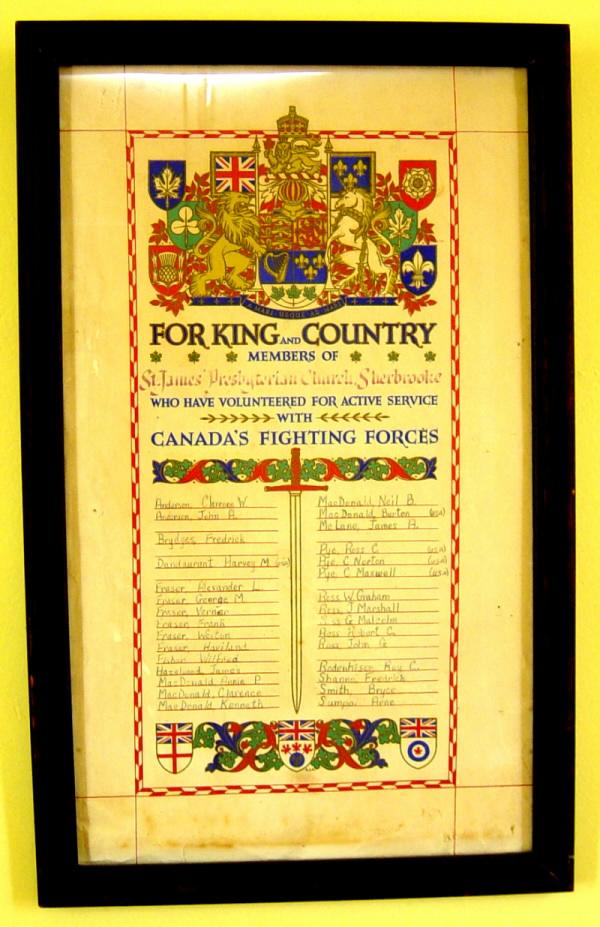 A MARI USQUE AD MARE
FOR KING AND COUNTRY
MEMBERS OF
St. James' Presbyterian Church, Sherbrooke
WHO HAVE VOLUNTEERED FOR ACTIVE SERVICE
WITH
CANADA'S FIGHTING FORCES
Anderson, Clarence W.
Anderson, John A.
Brydges, Fredrick
Harvey M. (USA)
Fraser, Alexander L.
Fraser, George M.
Fraser, Vernier
Fraser, Frank
Fraser, Weston
Fraser, Haviland
Fisher, Wilfred
Hazelwood, James
MacDonald, Annie P.
MacDonald, Clarence
MacDonald, Kenneth
MacDonald, Neil B.
MacDonald, Burton (USA)
McLane, James A.
Pye, Ross C. (USA)
Pye, C. Norton (USA)
Pye, C. Maxwell (USA)
Ross, W. Graham
Ross, J. Marshall
Ross, G. Malcolm
Ross, Robert C.
Ross, John G.
Rodenhiser, Ray C.
Shanno, Fredrick
Smith, Bryce
Sumpo, Arne